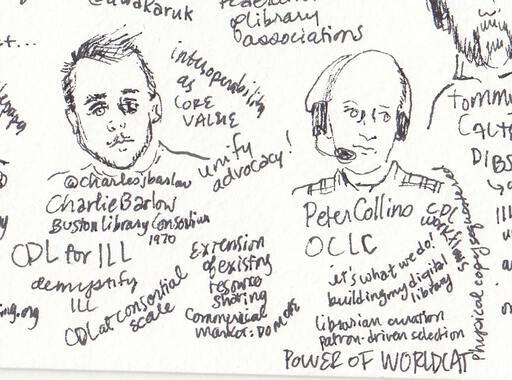 @awakaruk
library
associations
interoperability
as
CORE
VALUE
unify
advocacy!
@charlesjbarlow
Charlie Barlow
Boston Library Consortium
1970
CDL for ILL
demystify
ILL
CDL at consortial
scale
Extension
of existing
resource
sharing
Commercial
market: DO MORE
Peter Collins
OCLC
it's what we do!
building my digital
library
librarian curation
patron-driven selection
POWER OF WORLDCAT
CDL
workflows
Physical copy sequester
Tommy
CALTE
DIBS
ILL
ing.org